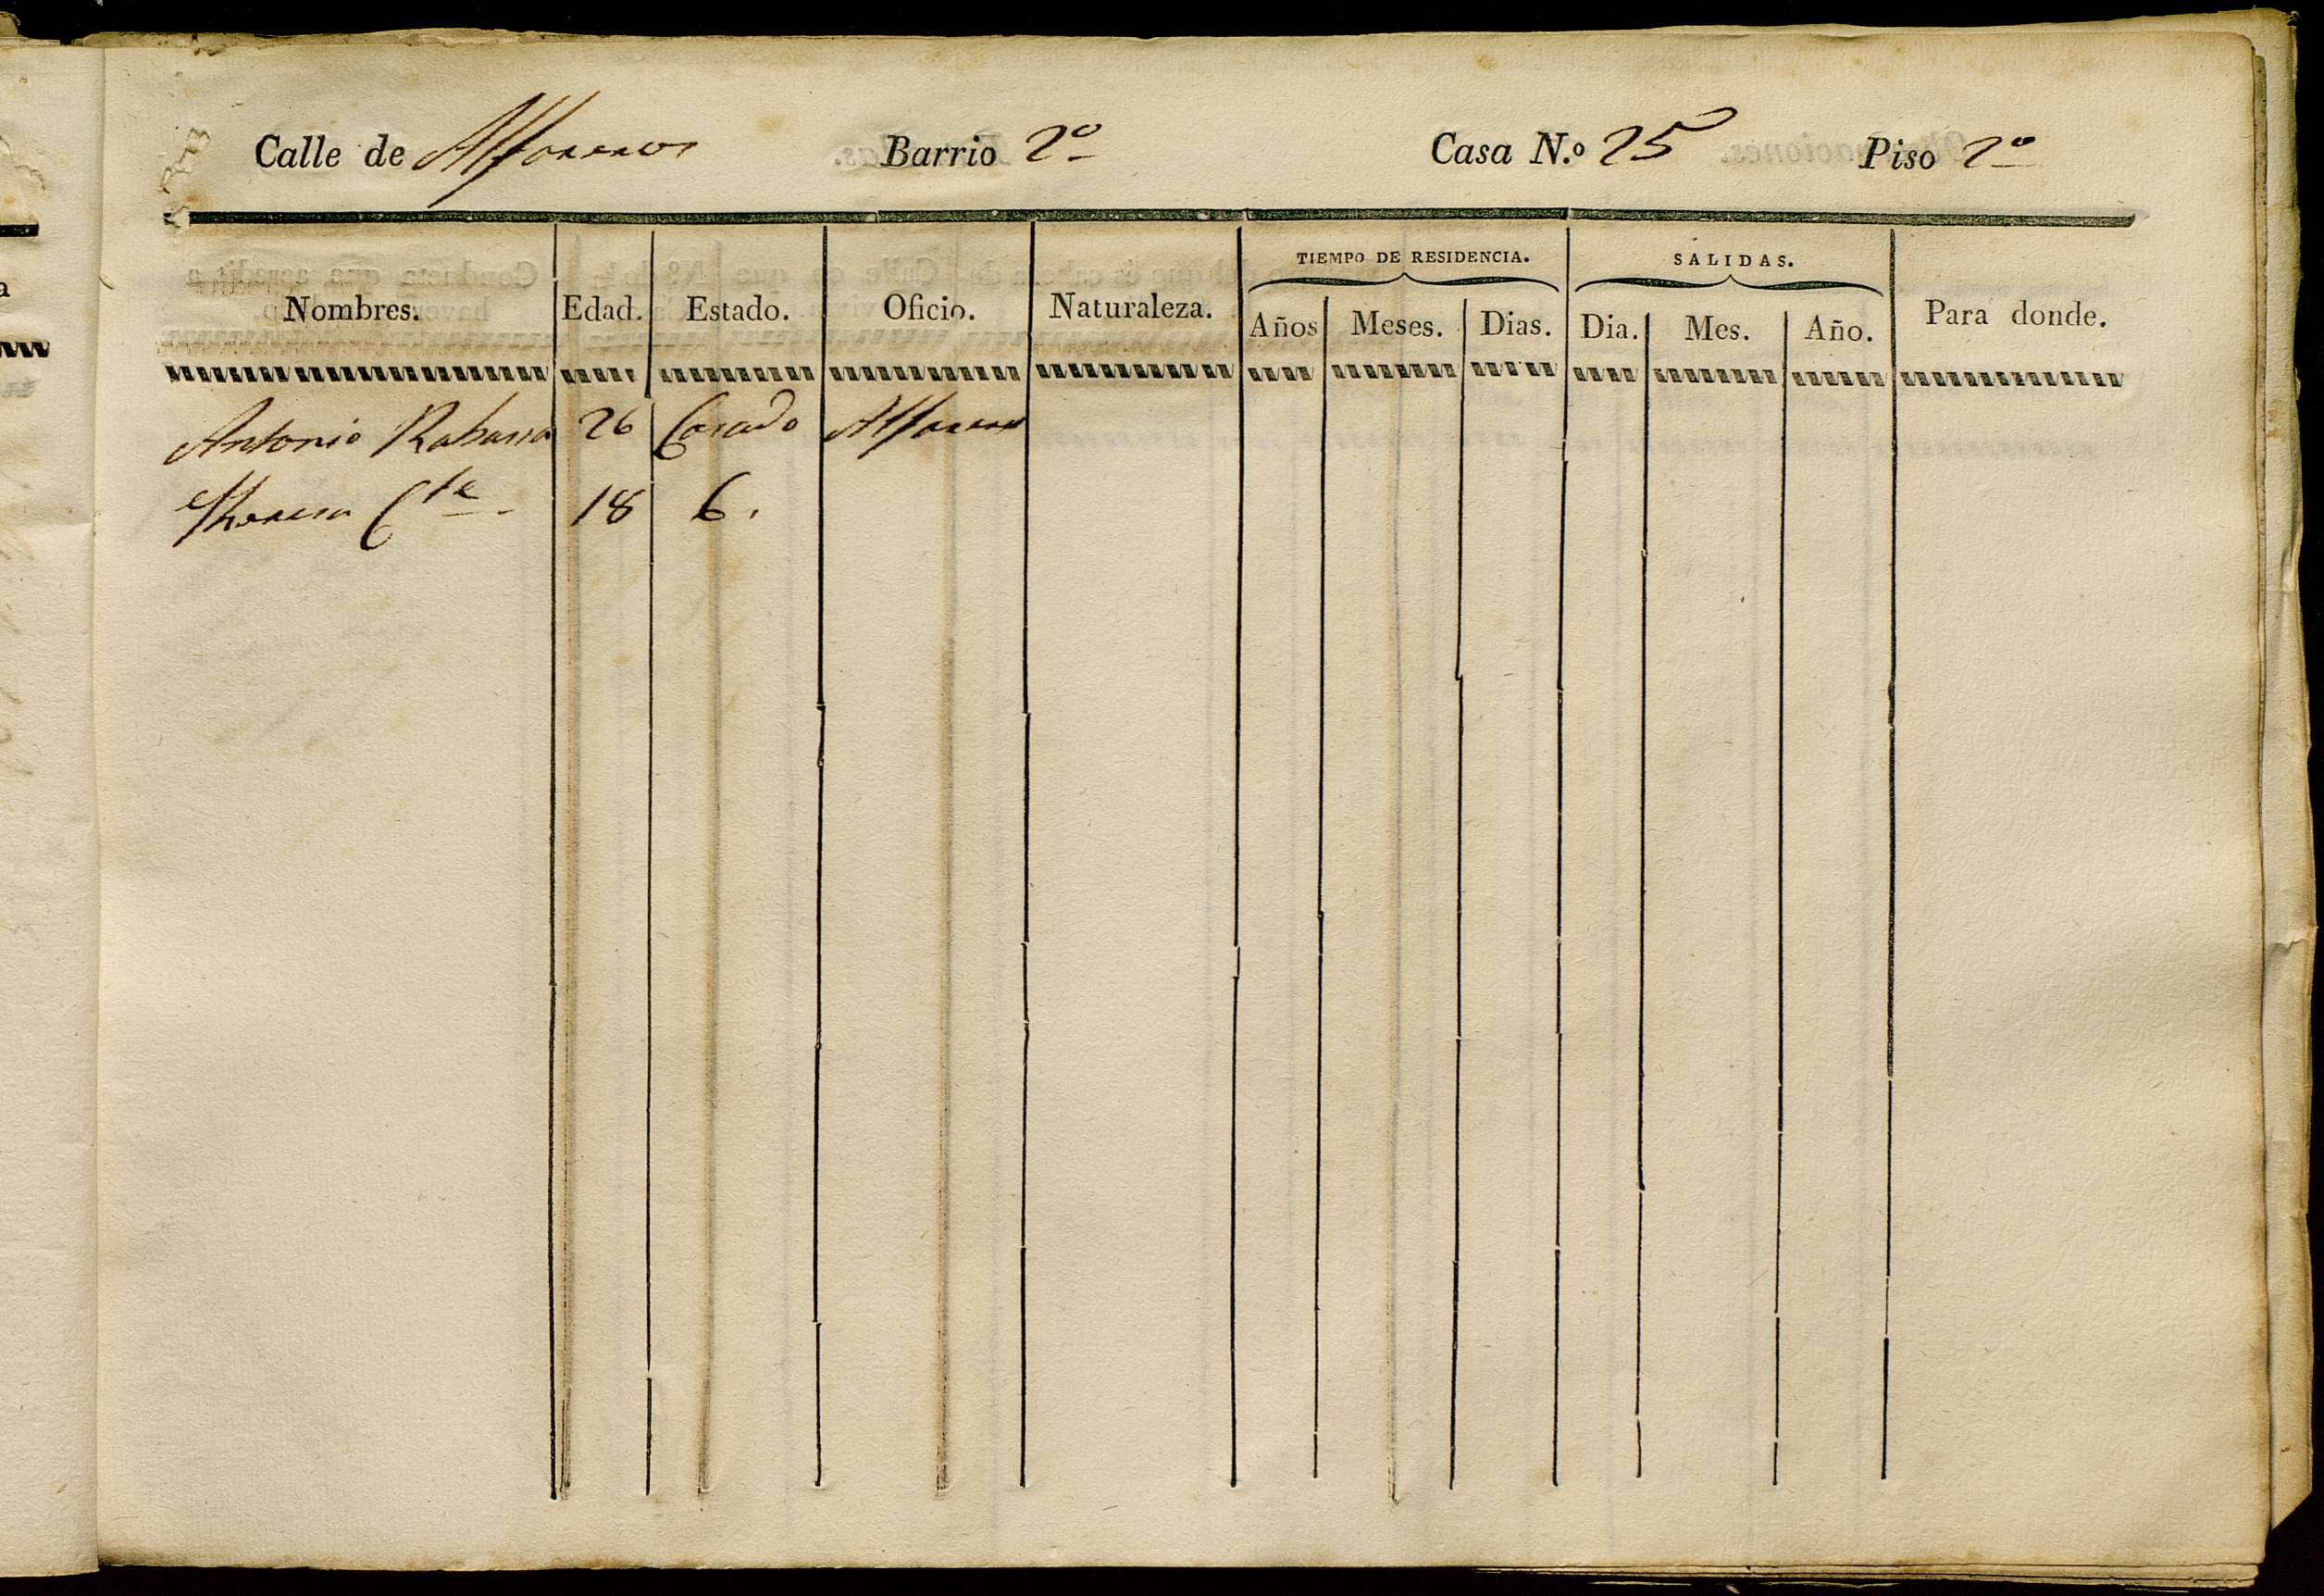 Calle de Alfareros Barrio 2º Casa N.º 25 Piso 2º
TIEMPO DE RESIDENCIA. SALIDAS.
Nombres. Edad. Estado. Oficio. Naturaleza. Años Meses. Dias. Dia. Mes. Año. Para donde.
Antonio Rabassa 26 Casado Alfarero
Theresa 18 C.